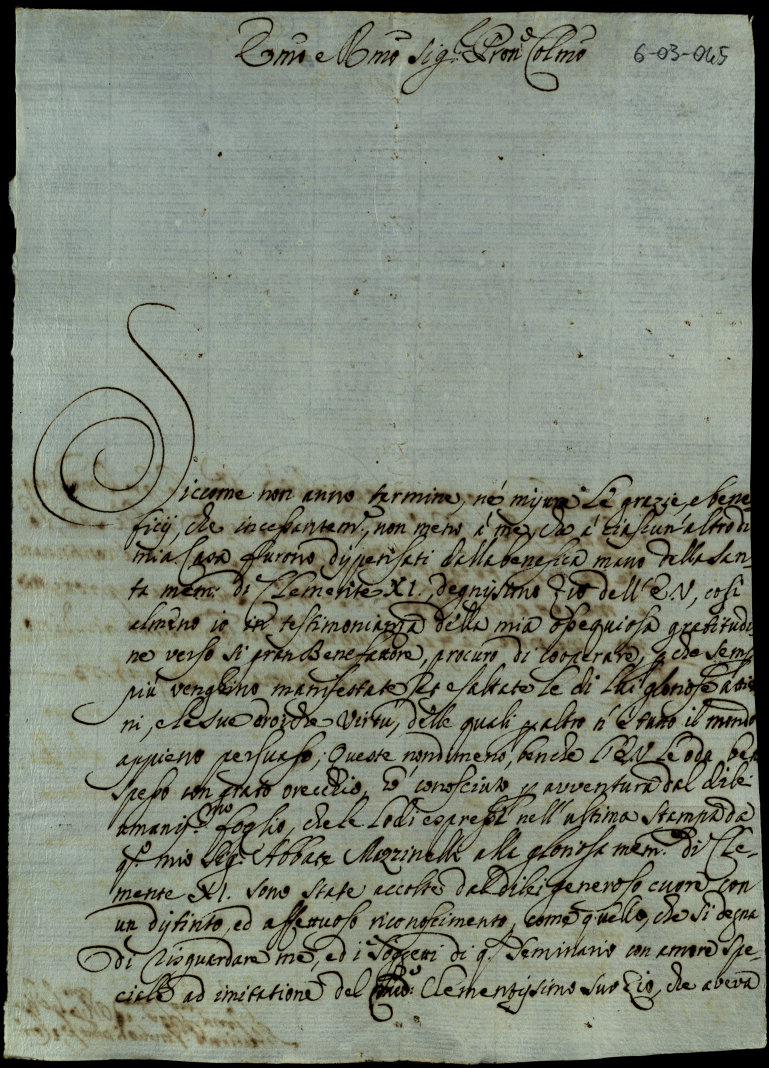 Emo e Rmo Sig.r Pron Colmo
6-03-045
Siccome non anno termine, né misura le grazie, e bene-
ficij, che incessantem.e, non meno á me, che á ciascun'altro di
mia Casa furono dispensati dalla benefica mano della San-
ta mem: di Clemente XI., degnissimo Zio dell'E V, così
almeno io in testimonianza della mia ossequiosa gratitudi-
ne verso si gran Benefattore, procuro di cooperare, che semp
più venghino manifestate, ed esaltate le di lui gloriose attio
ni, e le sue eroiche virtú, delle quali altro n'è tutto il mondo
appieno persuaso; Queste nondimeno, benche l'E V le oda ben
spesso con grato orecchio, hó conosciuto avventura dal di lei
umaniss.o suo foglio, che le lodi espresse nell'ultima stampa da
q.o mio Sig.r Abbate Mazzinelli alla gloriosa mem. di Cle-
mente XI. sono state accolte dal di lei generoso cuore con
un distinto, ed affettuoso riconoscimento, come quello, che si degna
di risguardare me, ed i soggetti di q.o Seminario con amore spe-
ciale ad imitatione del Clementissimo suo Zio, che aveva